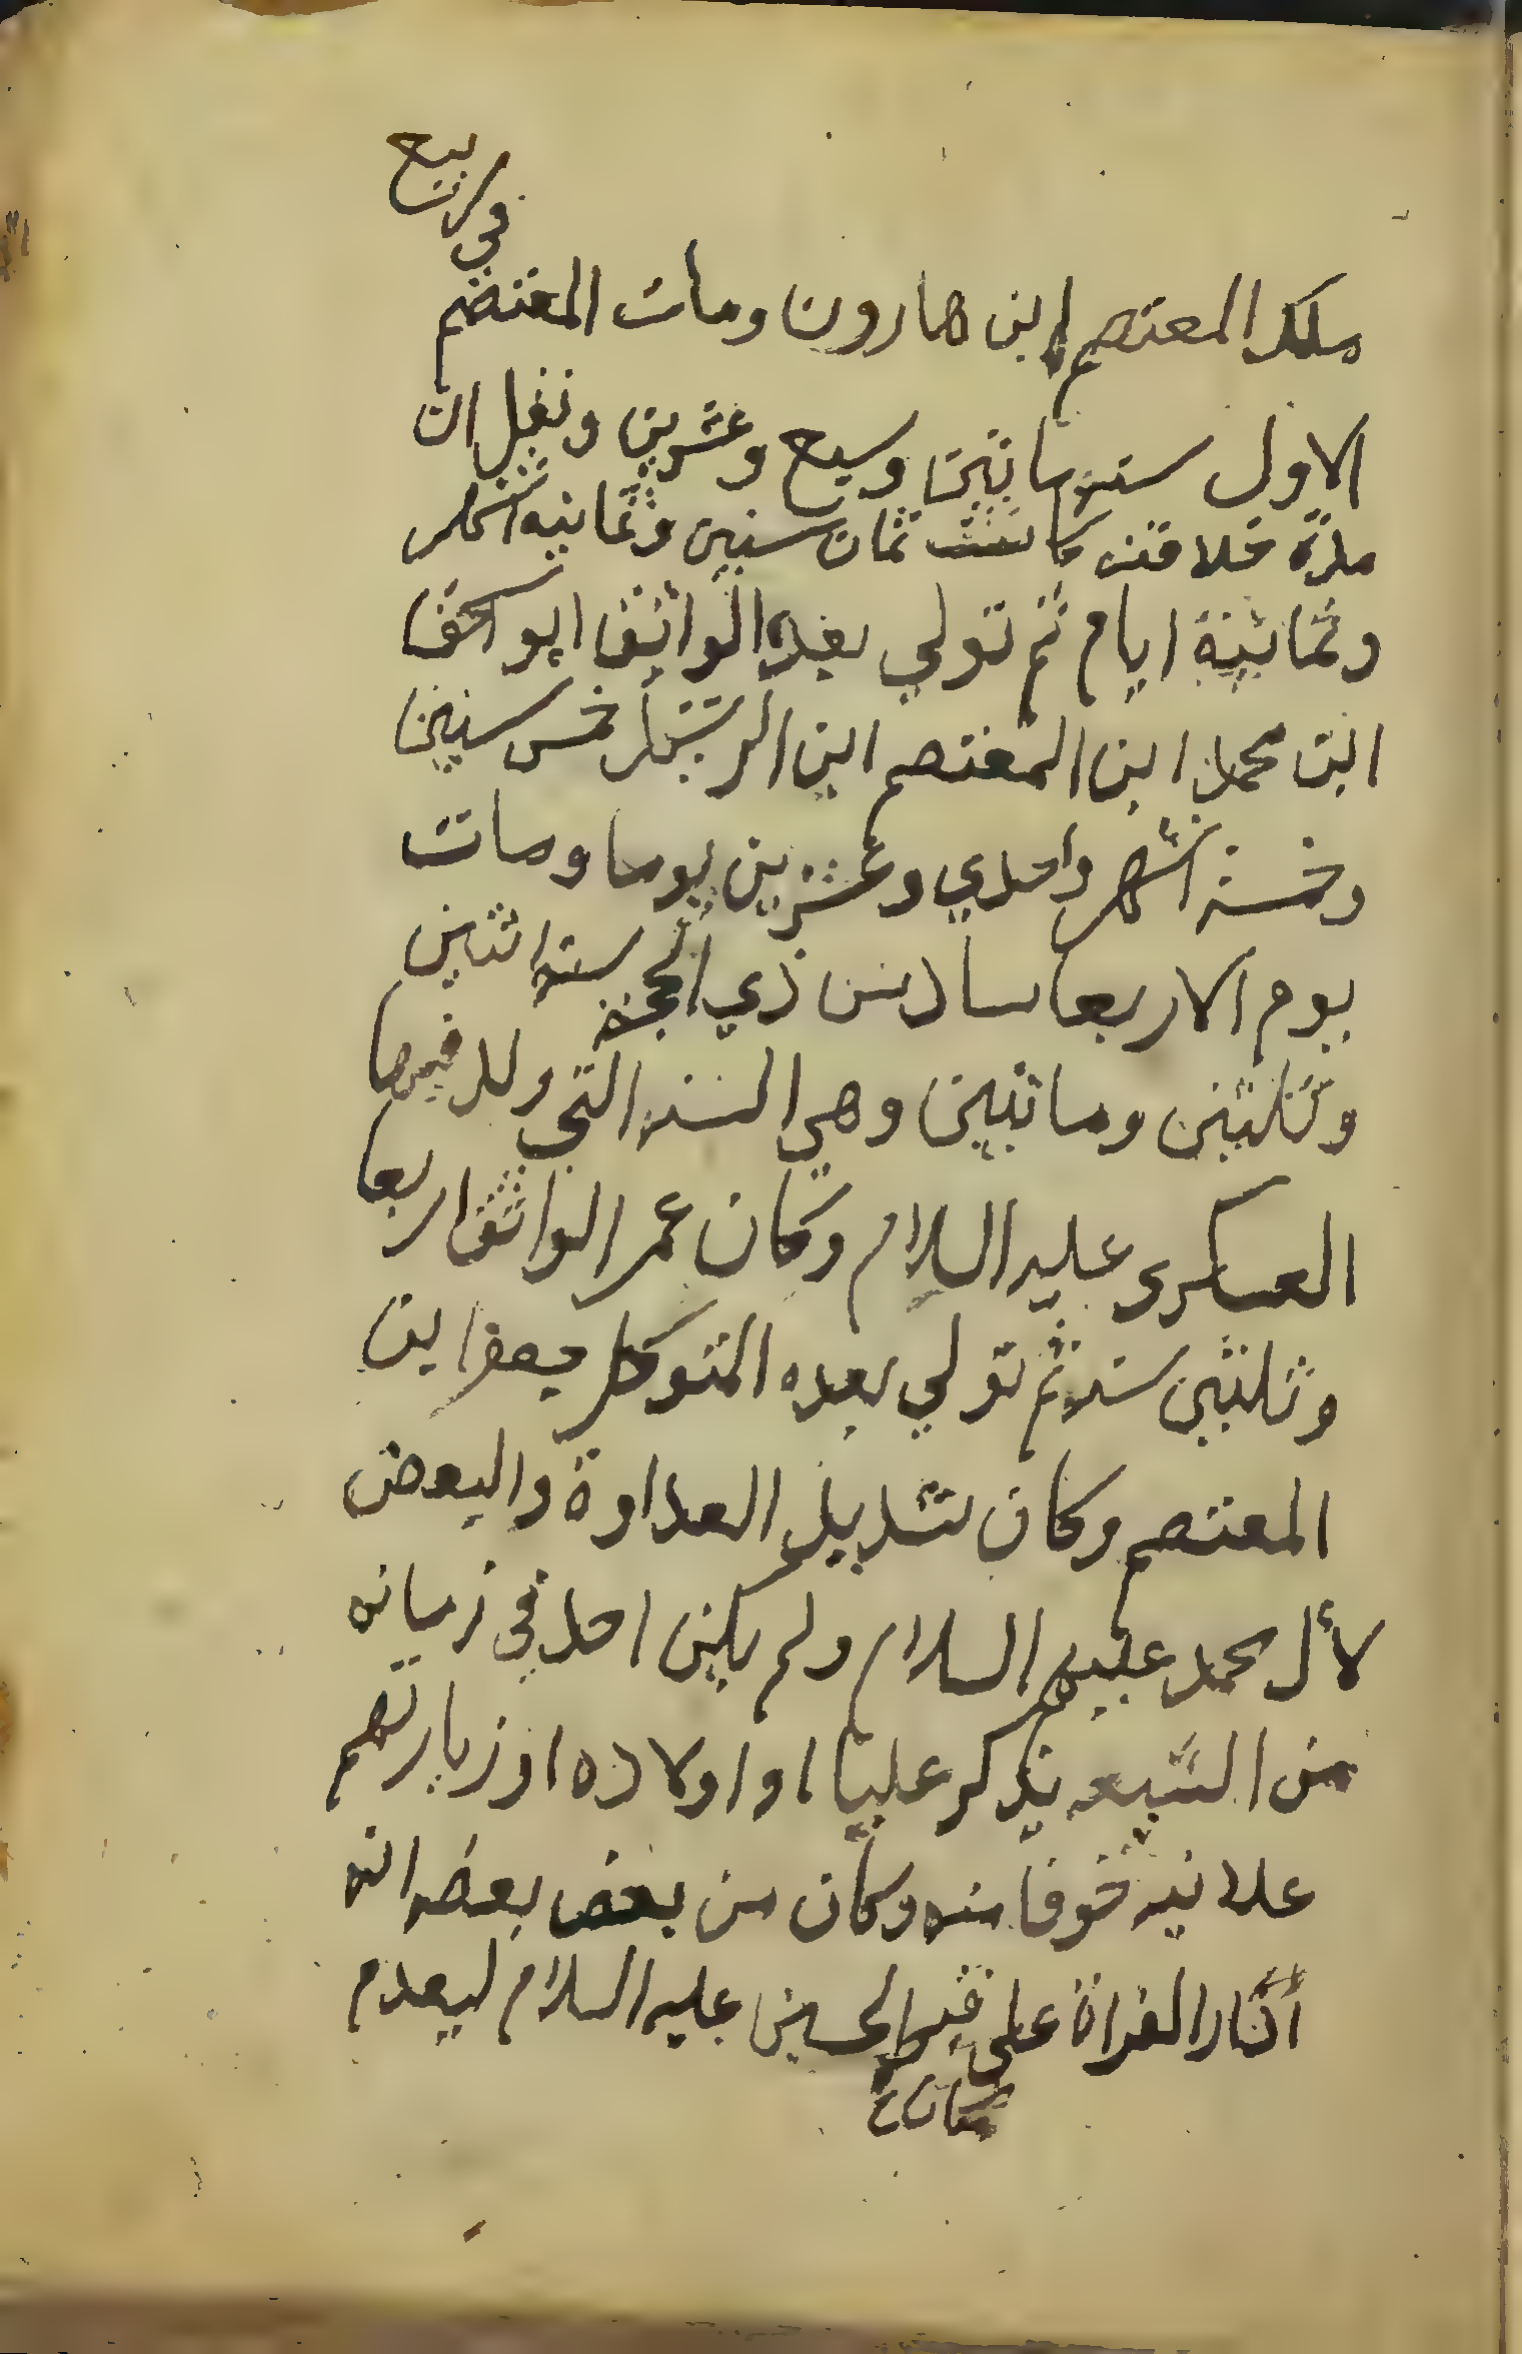 ملك المعتصم ابن هارون ومات المعتصم في ربيع
الاول سنه ماتين وسبع وعشرين ونقل ان
مدة خلافته كانت ثمان سنين وثمانيه اشهر
وثمانية ايام ثم تولي بعده الواثق ابو اسحق
ابن محمد ابن المعتصم ابن الرشيد خمس سنين
وخمسة اشهر واحدي وعشرين يوما ومات
يوم الاربعا سادس ذي الحجة سنة اثنين
وثلثين وماتين وهي السنه التي ولد فيها
العسكري عليه السلام وكان عمر الواثق اربعا
وثلثين سنه ثم تولي بعده المتوكل جعفر ابن
المعتصم وكان شديد العداوة والبعض
لأل محمد عليهم السلام ولم يكن احد في زمانه
من الشيعه يذكر عليا او اولاده او زيارتهم
علانيه خوفا منه وكان من بعض بعضه انه
أثار الفراة على قبر الحسين عليه السلام ليعدم
مكان